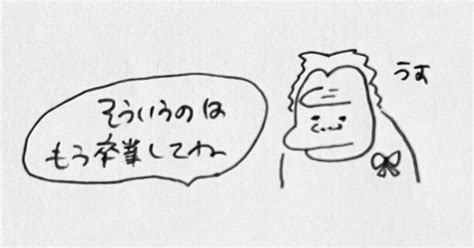 そういうのは
もう卒業してね
うす